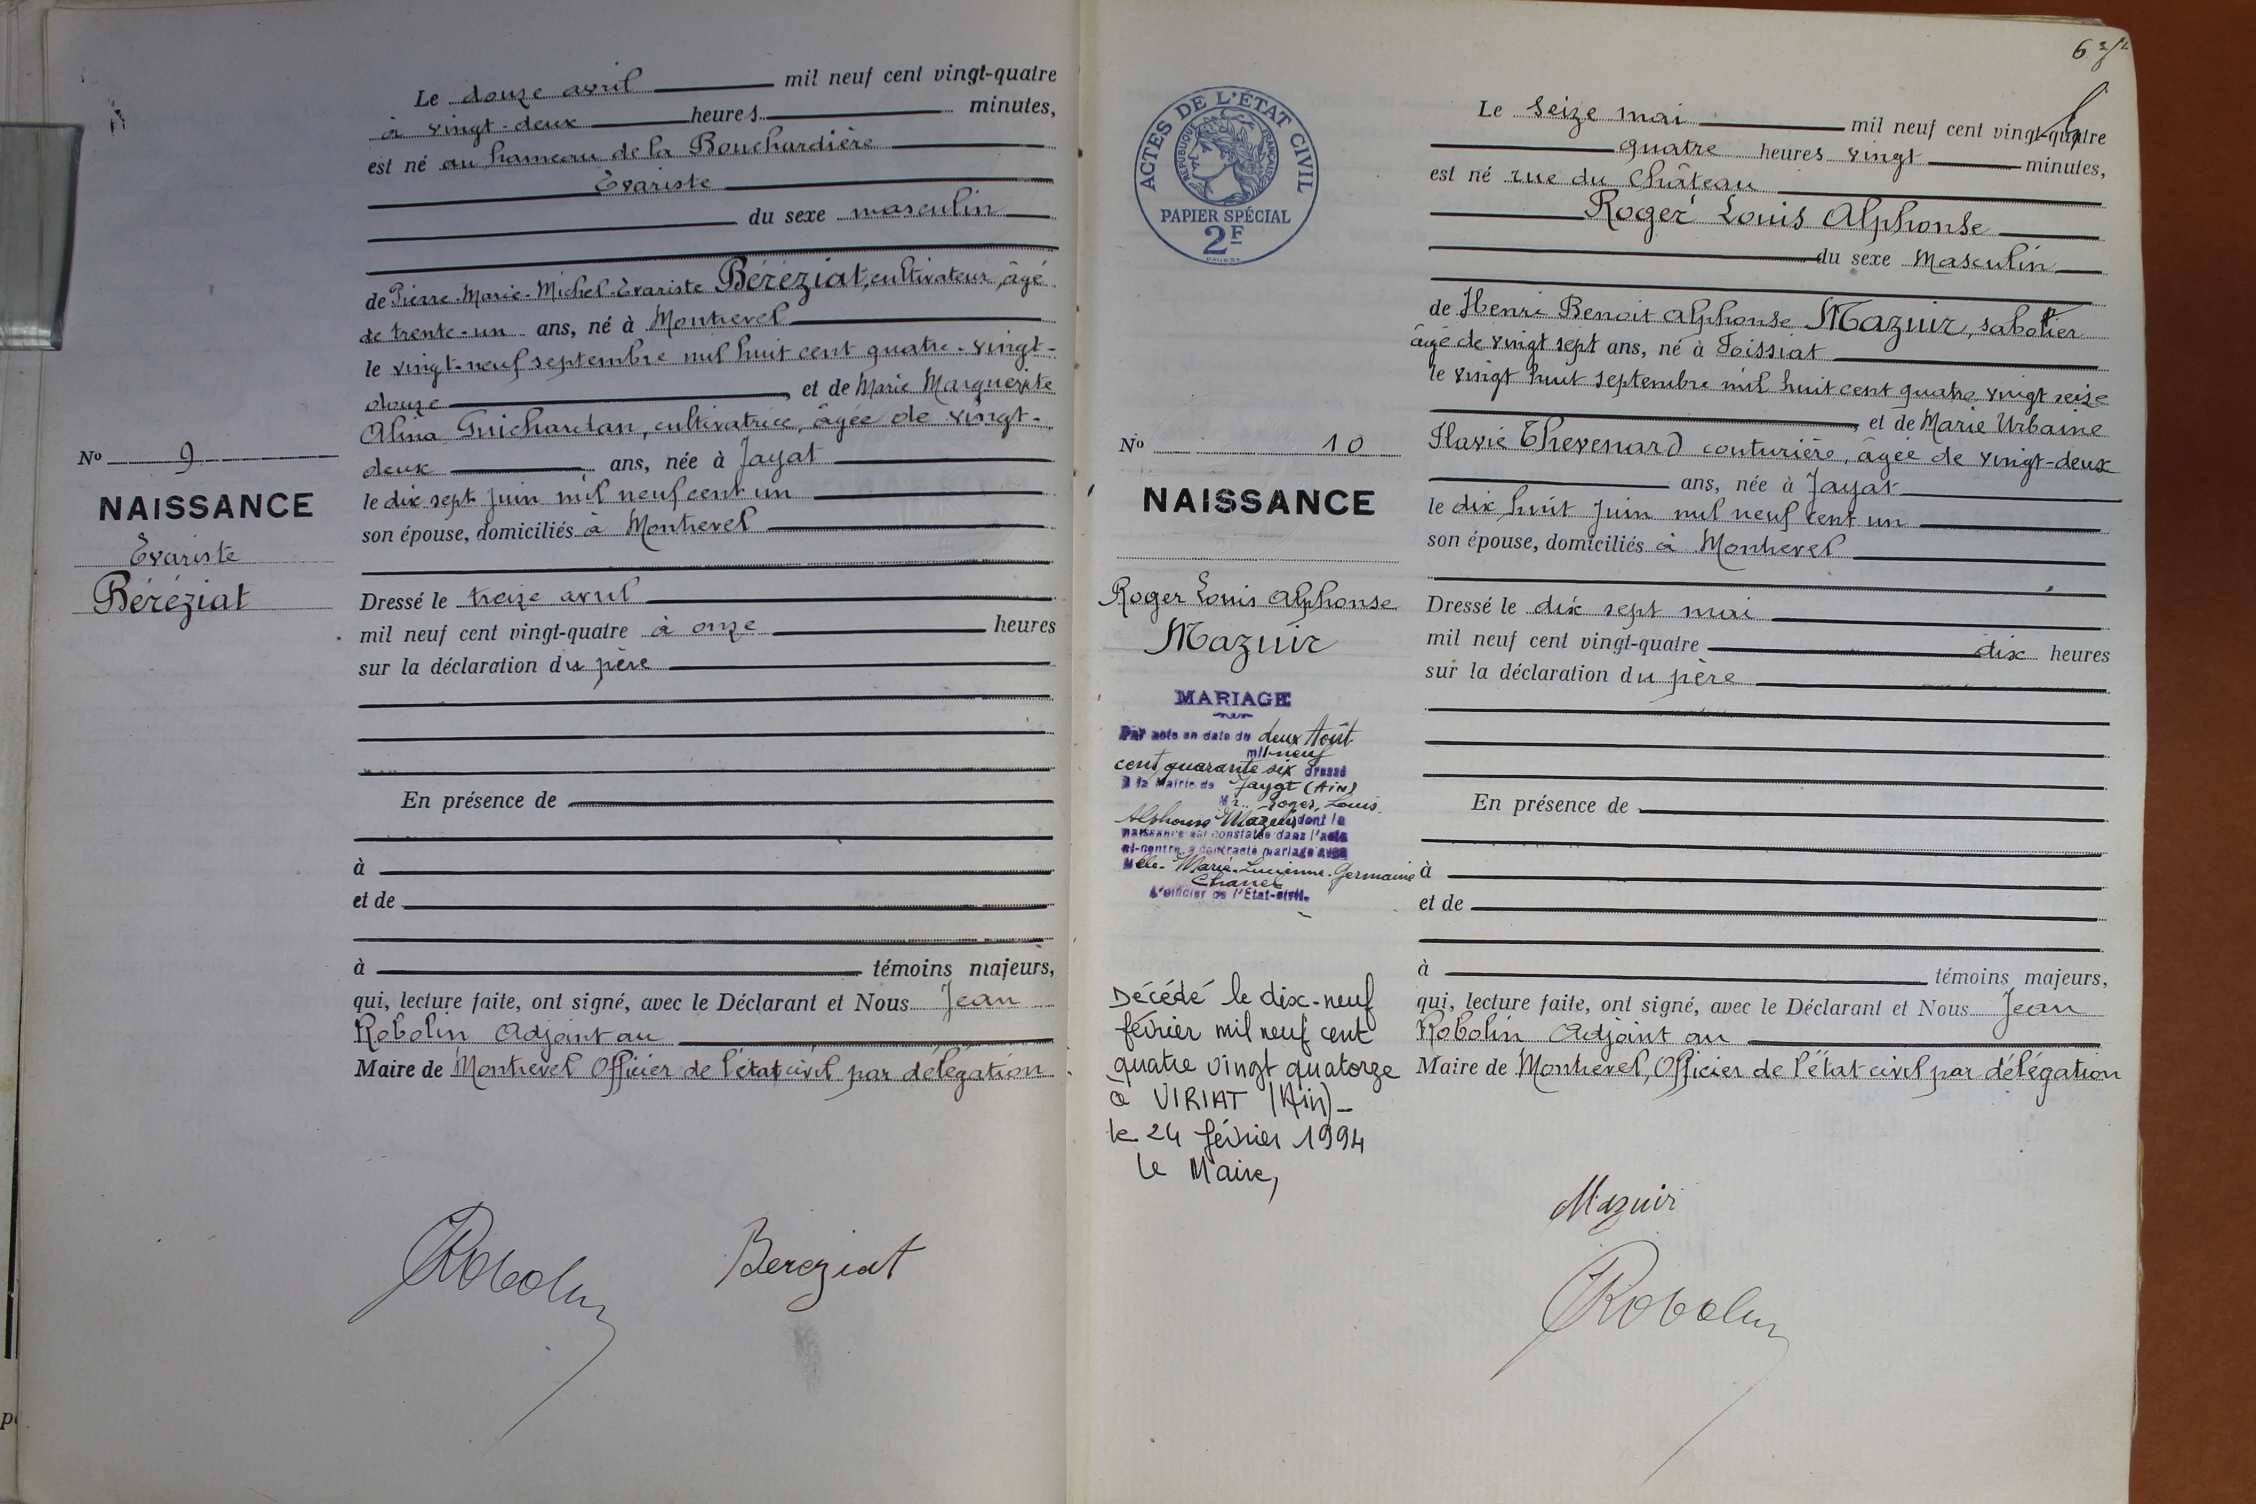 Le douze avril mil neuf cent vingt-quatre
à vingt-deux heures minutes,
est né au hameau de la Bouchardière
Evariste
du sexe masculin
de Pierre-Marie-Michel-Evariste Béréziat, cultivateur, âgé
de trente-un ans, né à Montrevel
le vingt-neuf septembre mil huit cent quatre-vingt-
douze, et de Marie Marguerite
Alina Guichardan, cultivatrice, âgée de vingt-
deux ans, née à Jayat
le dix sept juin mil neuf cent un
son épouse, domiciliés à Montrevel
Dressé le treize avril
mil neuf cent vingt-quatre à onze heures
sur la déclaration du père
En présence de
à
et de
à témoins majeurs,
qui, lecture faite, ont signé, avec le Déclarant et Nous Jean
Robolin Adjoint au
Maire de Montrevel Officier de l'état civil par délégation
No 9
NAISSANCE
Evariste
Béréziat
Robolin
Bereziat
6
ACTES DE L'ÉTAT CIVIL
RÉPUBLIQUE FRANÇAISE
PAPIER SPÉCIAL
2F
Le Seize mai mil neuf cent vingt-quatre
quatre heures vingt minutes,
est né rue du Château
Roger Louis Alphonse
du sexe Masculin
de Henri Benoit Alphonse Mazuir, sabotier
âgé de vingt sept ans, né à Foissiat
le vingt huit septembre mil huit cent quatre vingt seize
, et de Marie Urbaine
Flavie Thevenard couturière, âgée de vingt-deux
ans, née à Jayat
le dix huit juin mil neuf cent un
son épouse, domiciliés à Montrevel
Dressé le dix sept mai
mil neuf cent vingt-quatre dix heures
sur la déclaration du père
En présence de
à
et de
à témoins majeurs,
qui, lecture faite, ont signé, avec le Déclarant et Nous Jean
Robolin Adjoint au
Maire de Montrevel, Officier de l'état civil par délégation
No 10
NAISSANCE
Roger Louis Alphonse
Mazuir
MARIAGE
Par acte en date du deux Août
mil neuf
cent quarante six dressé
à la Mairie de Jayat (Ain)
Mr. Roger, Louis
Alphonse Mazuir dont la
naissance est constatée dans l'acte
ci-contre a contracté mariage avec
Melle Marie-Lucienne-Germaine
Chanel
L'officier de l'Etat-civil.
Décédé le dix-neuf
février mil neuf cent
quatre vingt quatorze
à VIRIAT (Ain)_
le 24 février 1994
Le Maire,
Mazuir
Robolin